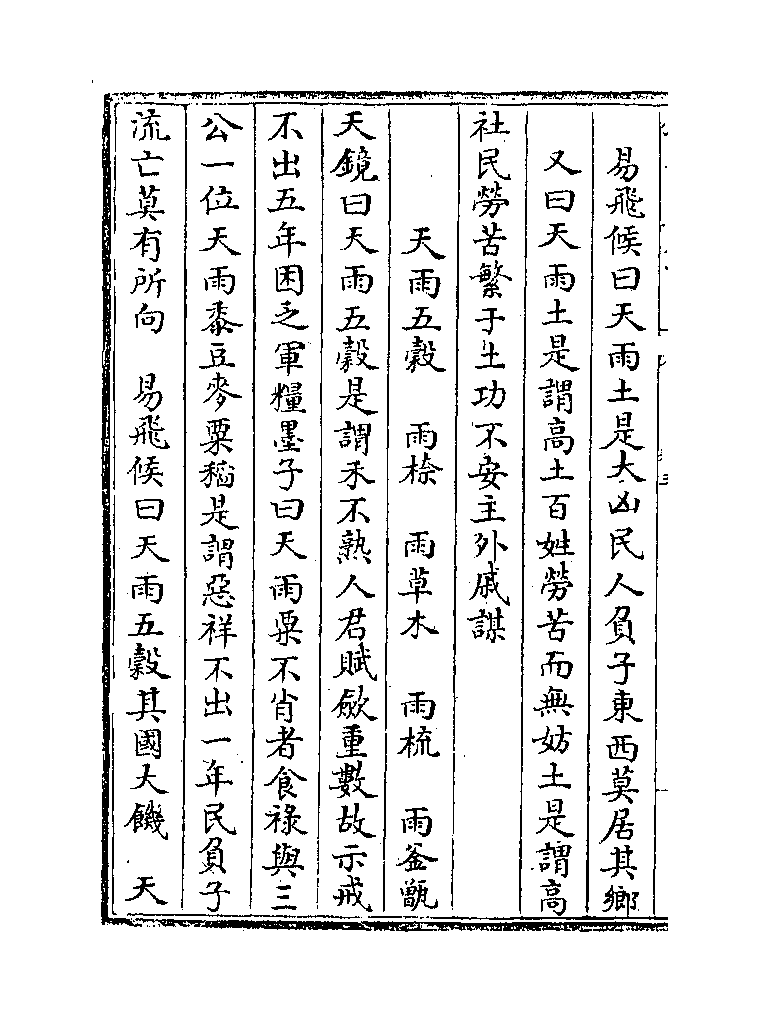 易飛候曰天雨土是大凶民人負子東西莫居其鄉
又曰天雨土是謂高土百姓勞苦而無妨土是謂高
社民勞苦繁于土功不安主外戚謀
天雨五穀　雨㮈　雨草木　雨梳　雨釜甑
天鏡曰天雨五穀是謂禾不熟人君賦斂重數故示戒
不出五年困乏軍糧墨子曰天雨粟不肖者食祿與三
公一位天雨黍豆麥粟稻是謂惡祥不出一年民負子
流亡莫有所向　易飛候曰天雨五穀其國大饑　天